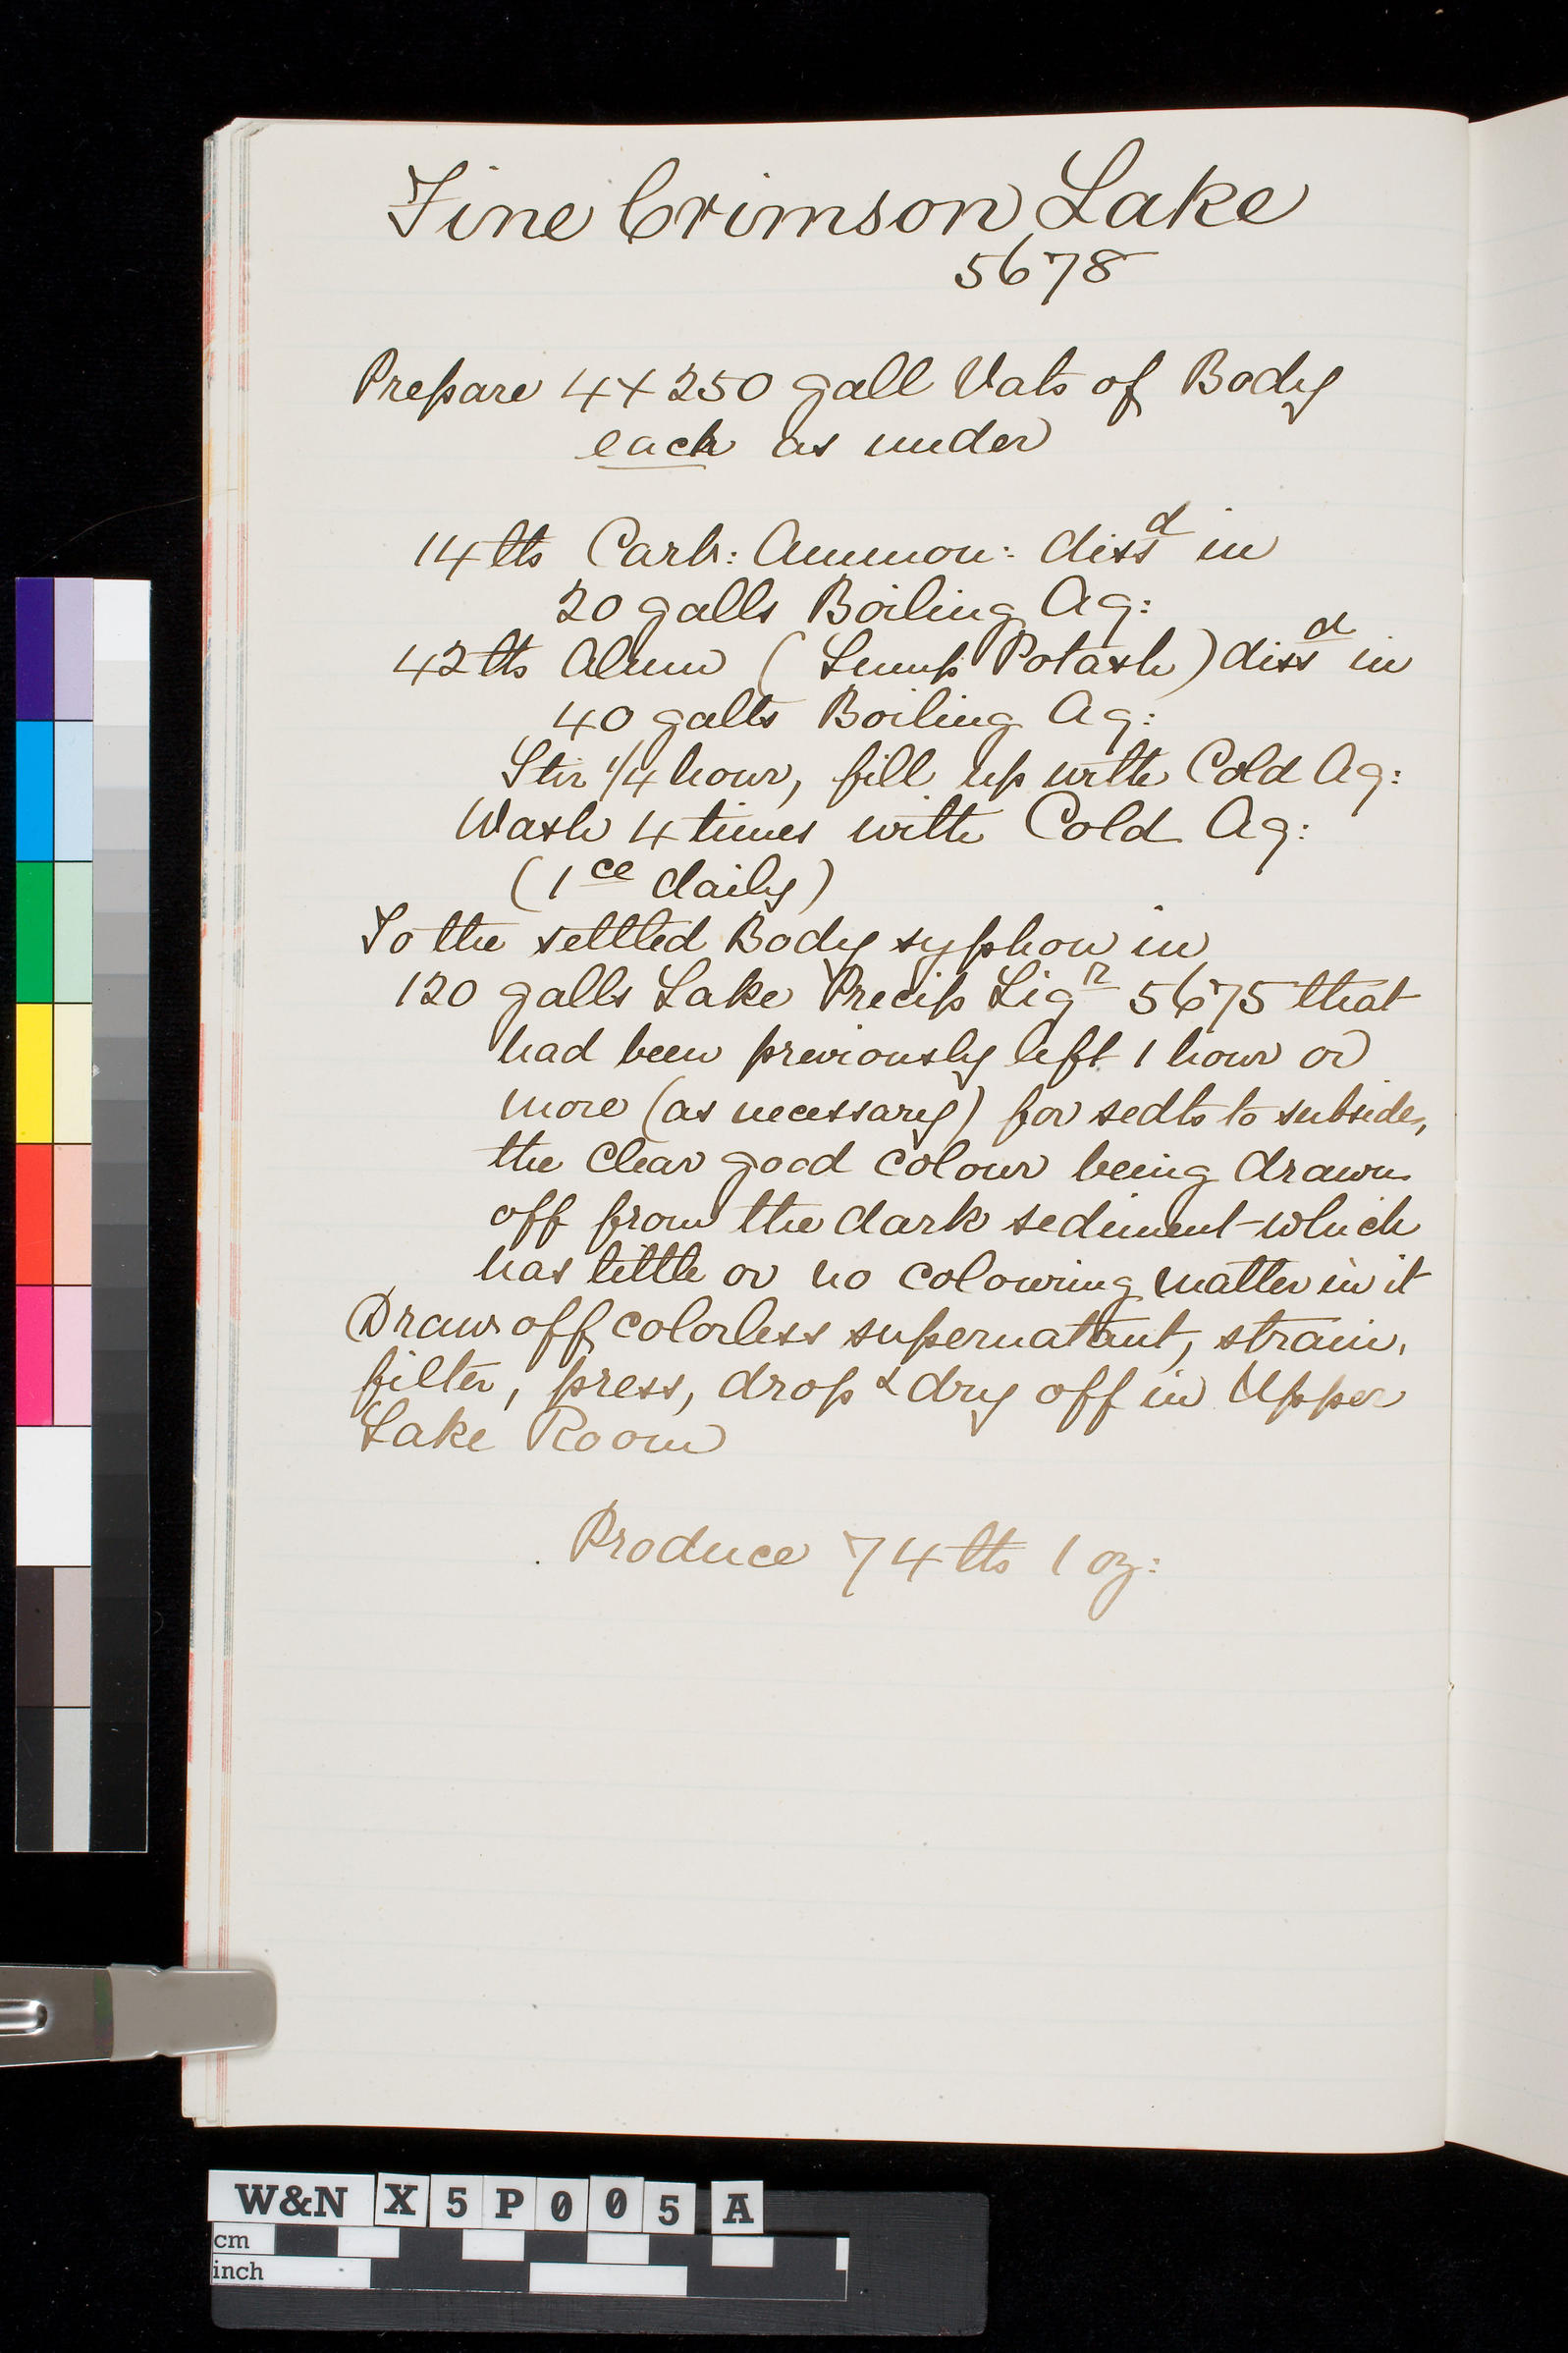 Fine Crimson Lake
5678
Prepare 4 x 250 gall Vats of Body
each as under
14 lbs Carb: Ammon: dissd in
20 galls Boiling Aq:
42 lbs Alum (Lump Potash) dissd in
40 galls Boiling Aq:
Stir 1/4 hour, fill up with Cold Aq:
Wash 4 times with Cold Aq:
(1ce daily)
To the settled Body syphon in
120 galls Lake Precip Liqr 5675 that
had been previously left 1 hour or
more (as necessary) for sedts to subside,
the clear good colour being drawn
off from the dark sediment which
has little or no colouring matter in it
Draw off colorless supernatant, strain,
filter, press, drop & dry off in Upper
Lake Room
Produce 74 lbs 1 oz:
W&N X5P005A
cm
inch